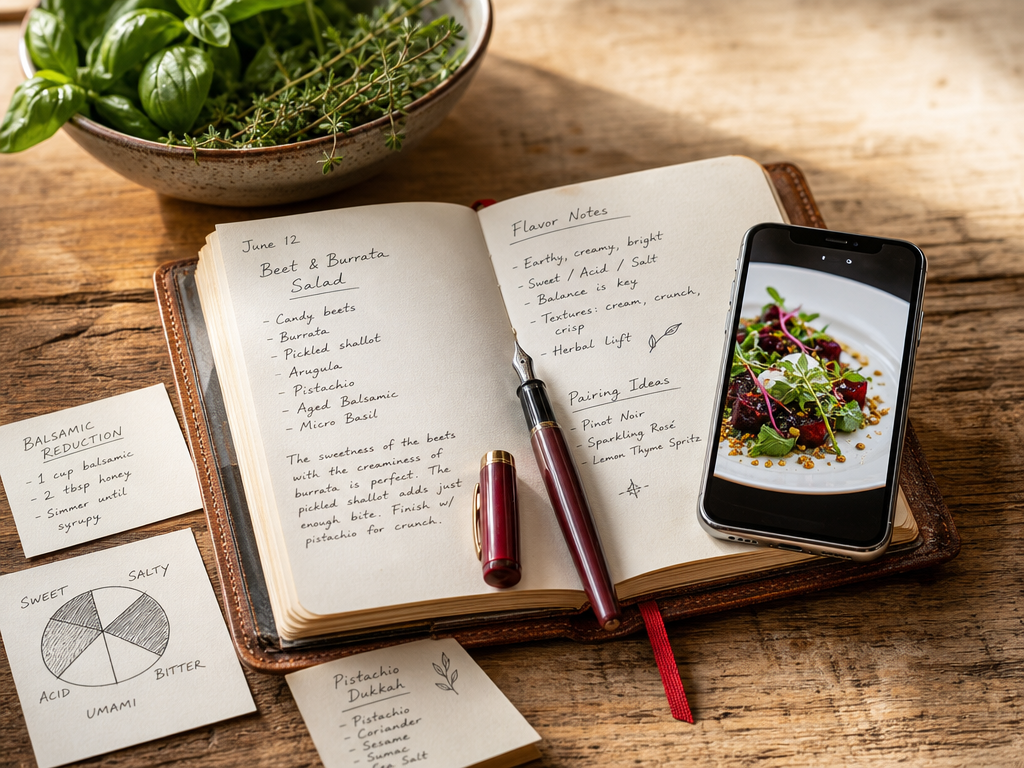 June 12
Beet & Burrata
Salad
- Candy beets
- Burrata
- Pickled shallot
- Arugula
- Pistachio
- Aged Balsamic
- Micro Basil
The sweetness of the beets
with the creaminess of
burrata is perfect. The
pickled shallot adds just
enough bite. Finish w/
pistachio for crunch.
Flavor Notes
- Earthy, creamy, bright
- Sweet / Acid / Salt
- Balance is key
- Textures: cream, crunch,
crisp
- Herbal Lift
Pairing Ideas
- Pinot Noir
- Sparkling Rosé
- Lemon Thyme Spritz
BALSAMIC
REDUCTION
- 1 cup balsamic
- 2 tbsp honey
- Simmer until
syrupy
SWEET
SALTY
ACID
BITTER
UMAMI
Pistachio
Dukkah
- Pistachio
- Coriander
- Sesame
- Sumac
- Sea Salt